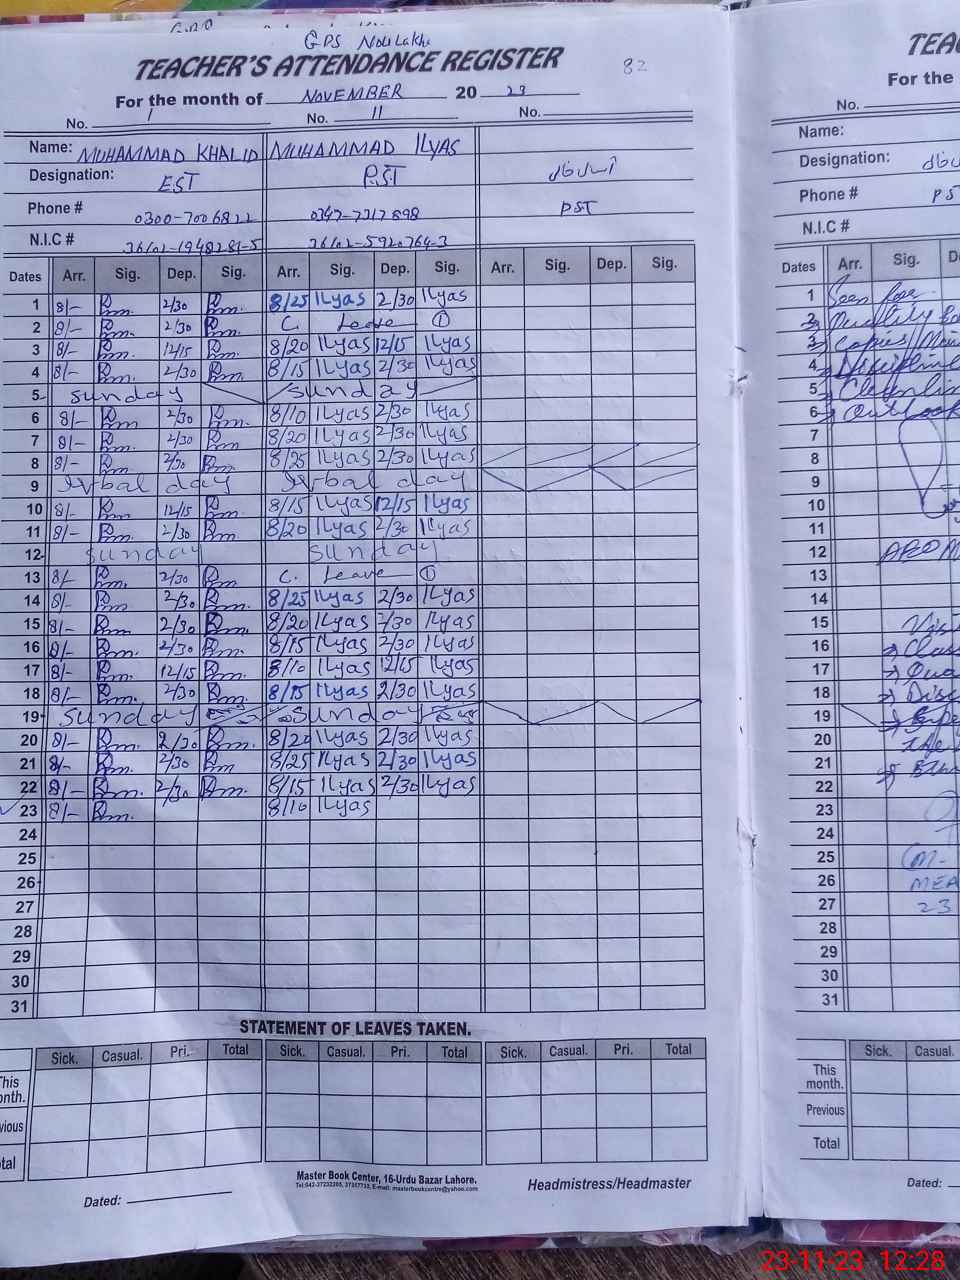 GPS Nolilakhi
TEACHER'S ATTENDANCE REGISTER 82
For the month of NOVEMBER 20 23
No. 1 No. 11 No.
Name: MUHAMMAD KHALID MUHAMMAD ILYAS
Designation: EST P.ST
Phone # 0300-7006822 0347-7317898 PST
N.I.C # 36102-1948281-5 36102-5920764-3
Dates Arr. Sig. Dep. Sig. Arr. Sig. Dep. Sig. Arr. Sig. Dep. Sig.
1 8/- 2/30 8/25 Ilyas 2/30 Ilyas
2 8/- 2/30 C. Leave ①
3 8/- 12/15 8/20 Ilyas 12/15 Ilyas
4 8/- 2/30 8/15 Ilyas 2/30 Ilyas
5 Sunday Sunday
6 8/- 2/30 8/10 Ilyas 2/30 Ilyas
7 8/- 2/30 8/20 Ilyas 2/30 Ilyas
8 8/- 2/30 8/25 Ilyas 2/30 Ilyas
9 Iqbal day Iqbal day
10 8/- 12/15 8/15 Ilyas 12/15 Ilyas
11 8/- 2/30 8/20 Ilyas 2/30 Ilyas
12 Sunday Sunday
13 8/- 2/30 C. Leave ①
14 8/- 2/30 8/25 Ilyas 2/30 Ilyas
15 8/- 2/30 8/20 Ilyas 2/30 Ilyas
16 8/- 2/30 8/15 Ilyas 2/30 Ilyas
17 8/- 12/15 8/10 Ilyas 12/15 Ilyas
18 8/- 2/30 8/15 Ilyas 2/30 Ilyas
19 Sunday Sunday
20 8/- 2/30 8/20 Ilyas 2/30 Ilyas
21 8/- 2/30 8/25 Ilyas 2/30 Ilyas
22 8/- 2/30 8/15 Ilyas 2/30 Ilyas
23 8/- 8/10 Ilyas
24
25
26
27
28
29
30
31
STATEMENT OF LEAVES TAKEN.
Sick. Casual. Pri. Total Sick. Casual. Pri. Total Sick. Casual. Pri. Total
This
onth.
vious
tal
Master Book Center, 16-Urdu Bazar Lahore.
Tel:042-37232205, 37357733, E-mail: masterbookcentre@yahoo.com
Dated: Headmistress/Headmaster
TEA
For the
No.
Name:
Designation:
Phone # PS
N.I.C #
Dates Arr. Sig. D
1 Seen for
2
3 Copies
4 Discipline
5
6 Outlook
7
8
9
10
11
12 AEO M
13
14
15
16
17 Qua
18 Disc
19
20 the
21
22
23
24
25
26 MEA
27 23
28
29
30
31
Sick. Casual.
This
month.
Previous
Total
Dated:
23-11-23 12:28